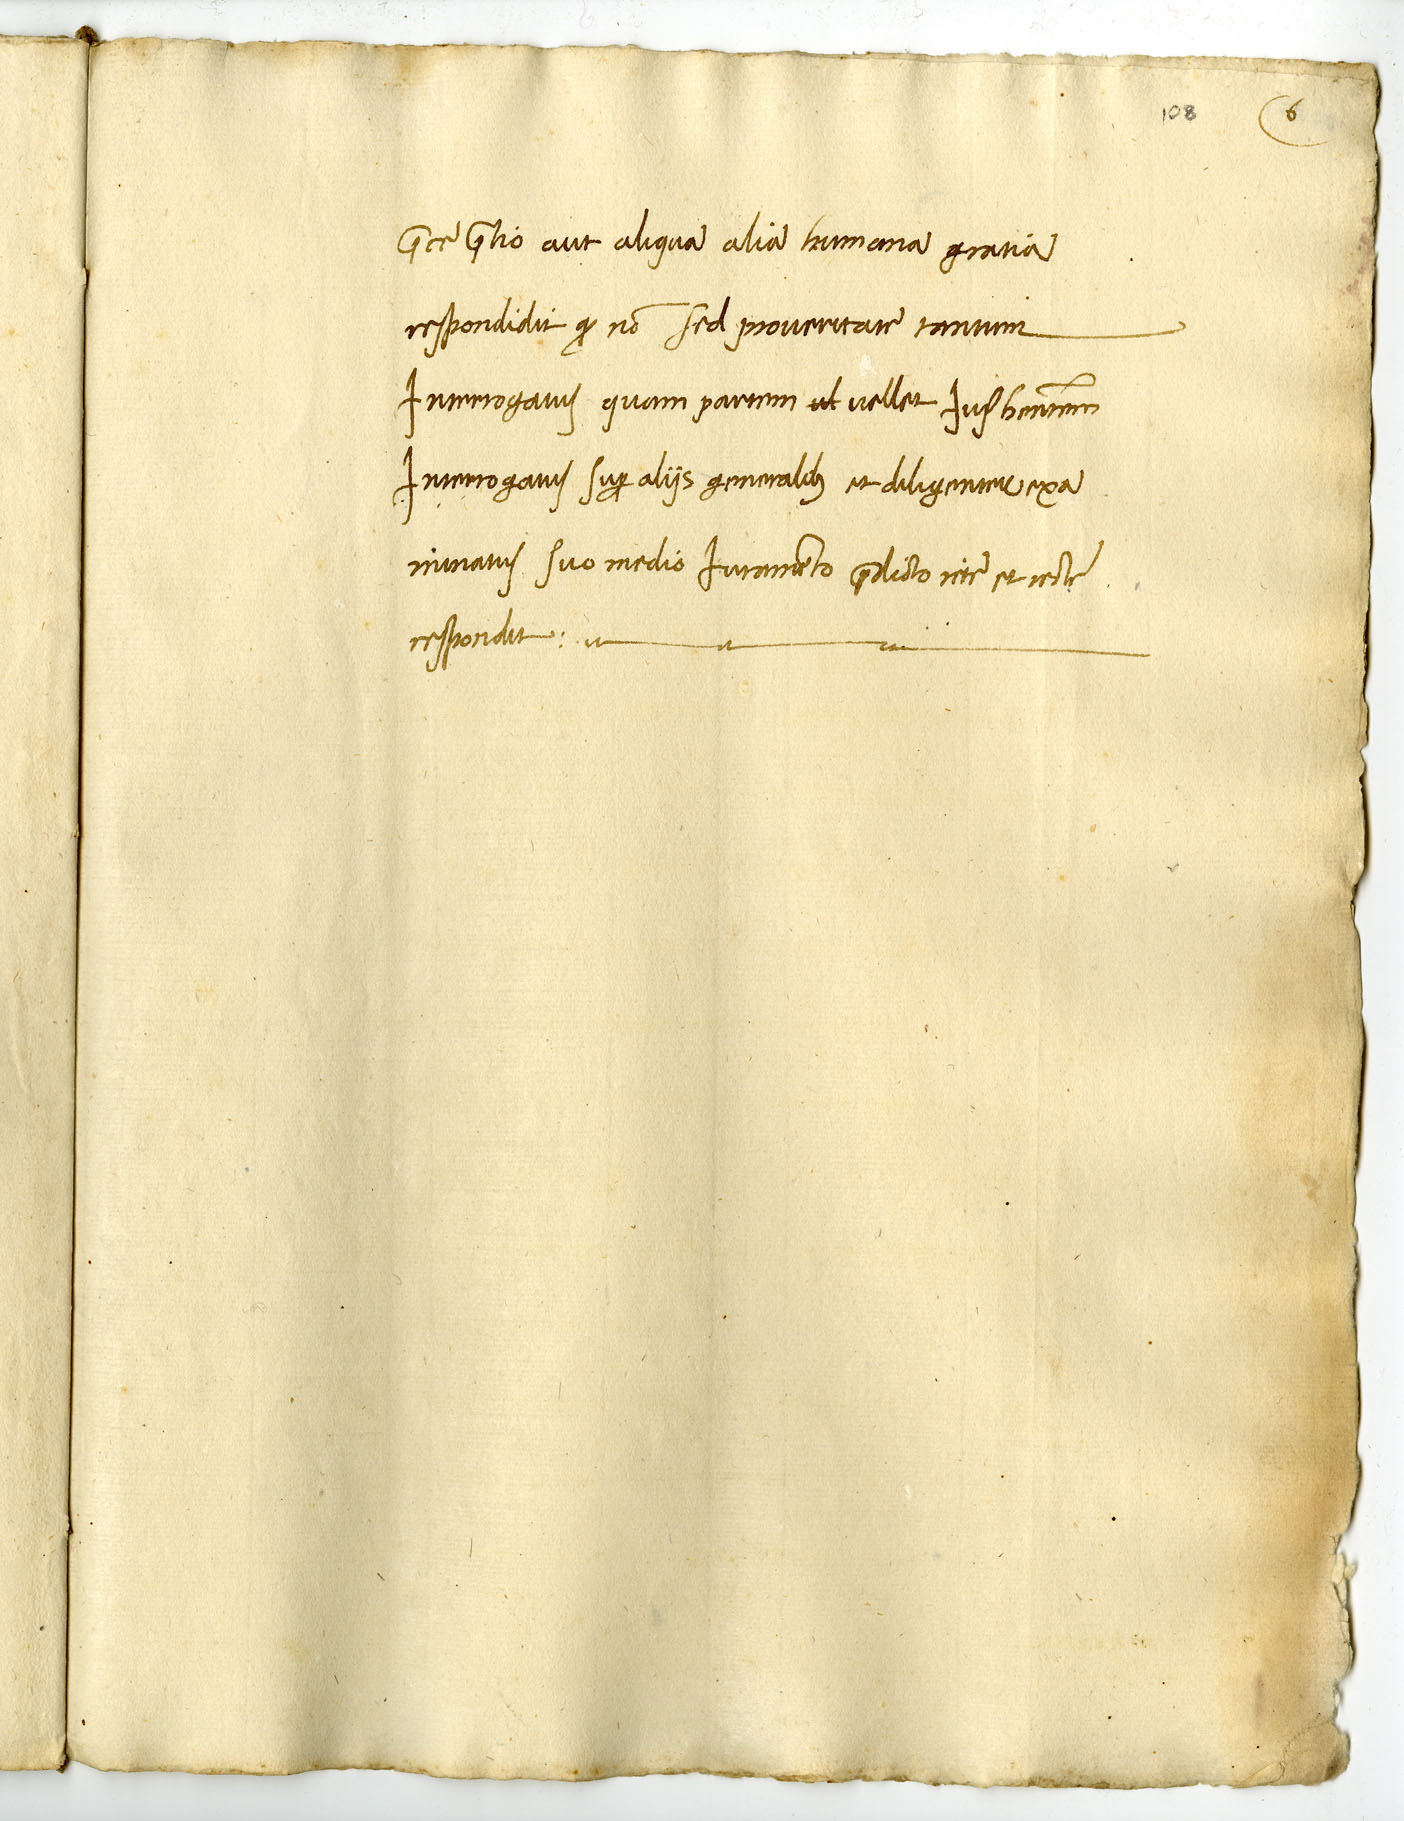 108 6
p̄ce p̄tio aut aliqua alia humana gratia
respondidit ꝙ nō sed proueritate tantum
Interrogatus quam partem ul uellet Jus hentem
Interrogatus suꝑ alijs generalibꝫ et diligenter exa
minatus suo medio Juramento p̄dicto rite et recte
respondit: